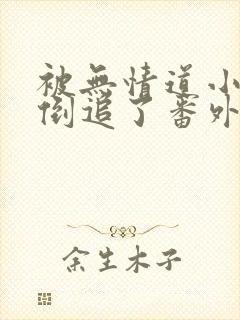 被無情道小
倒追了番外
余生木子